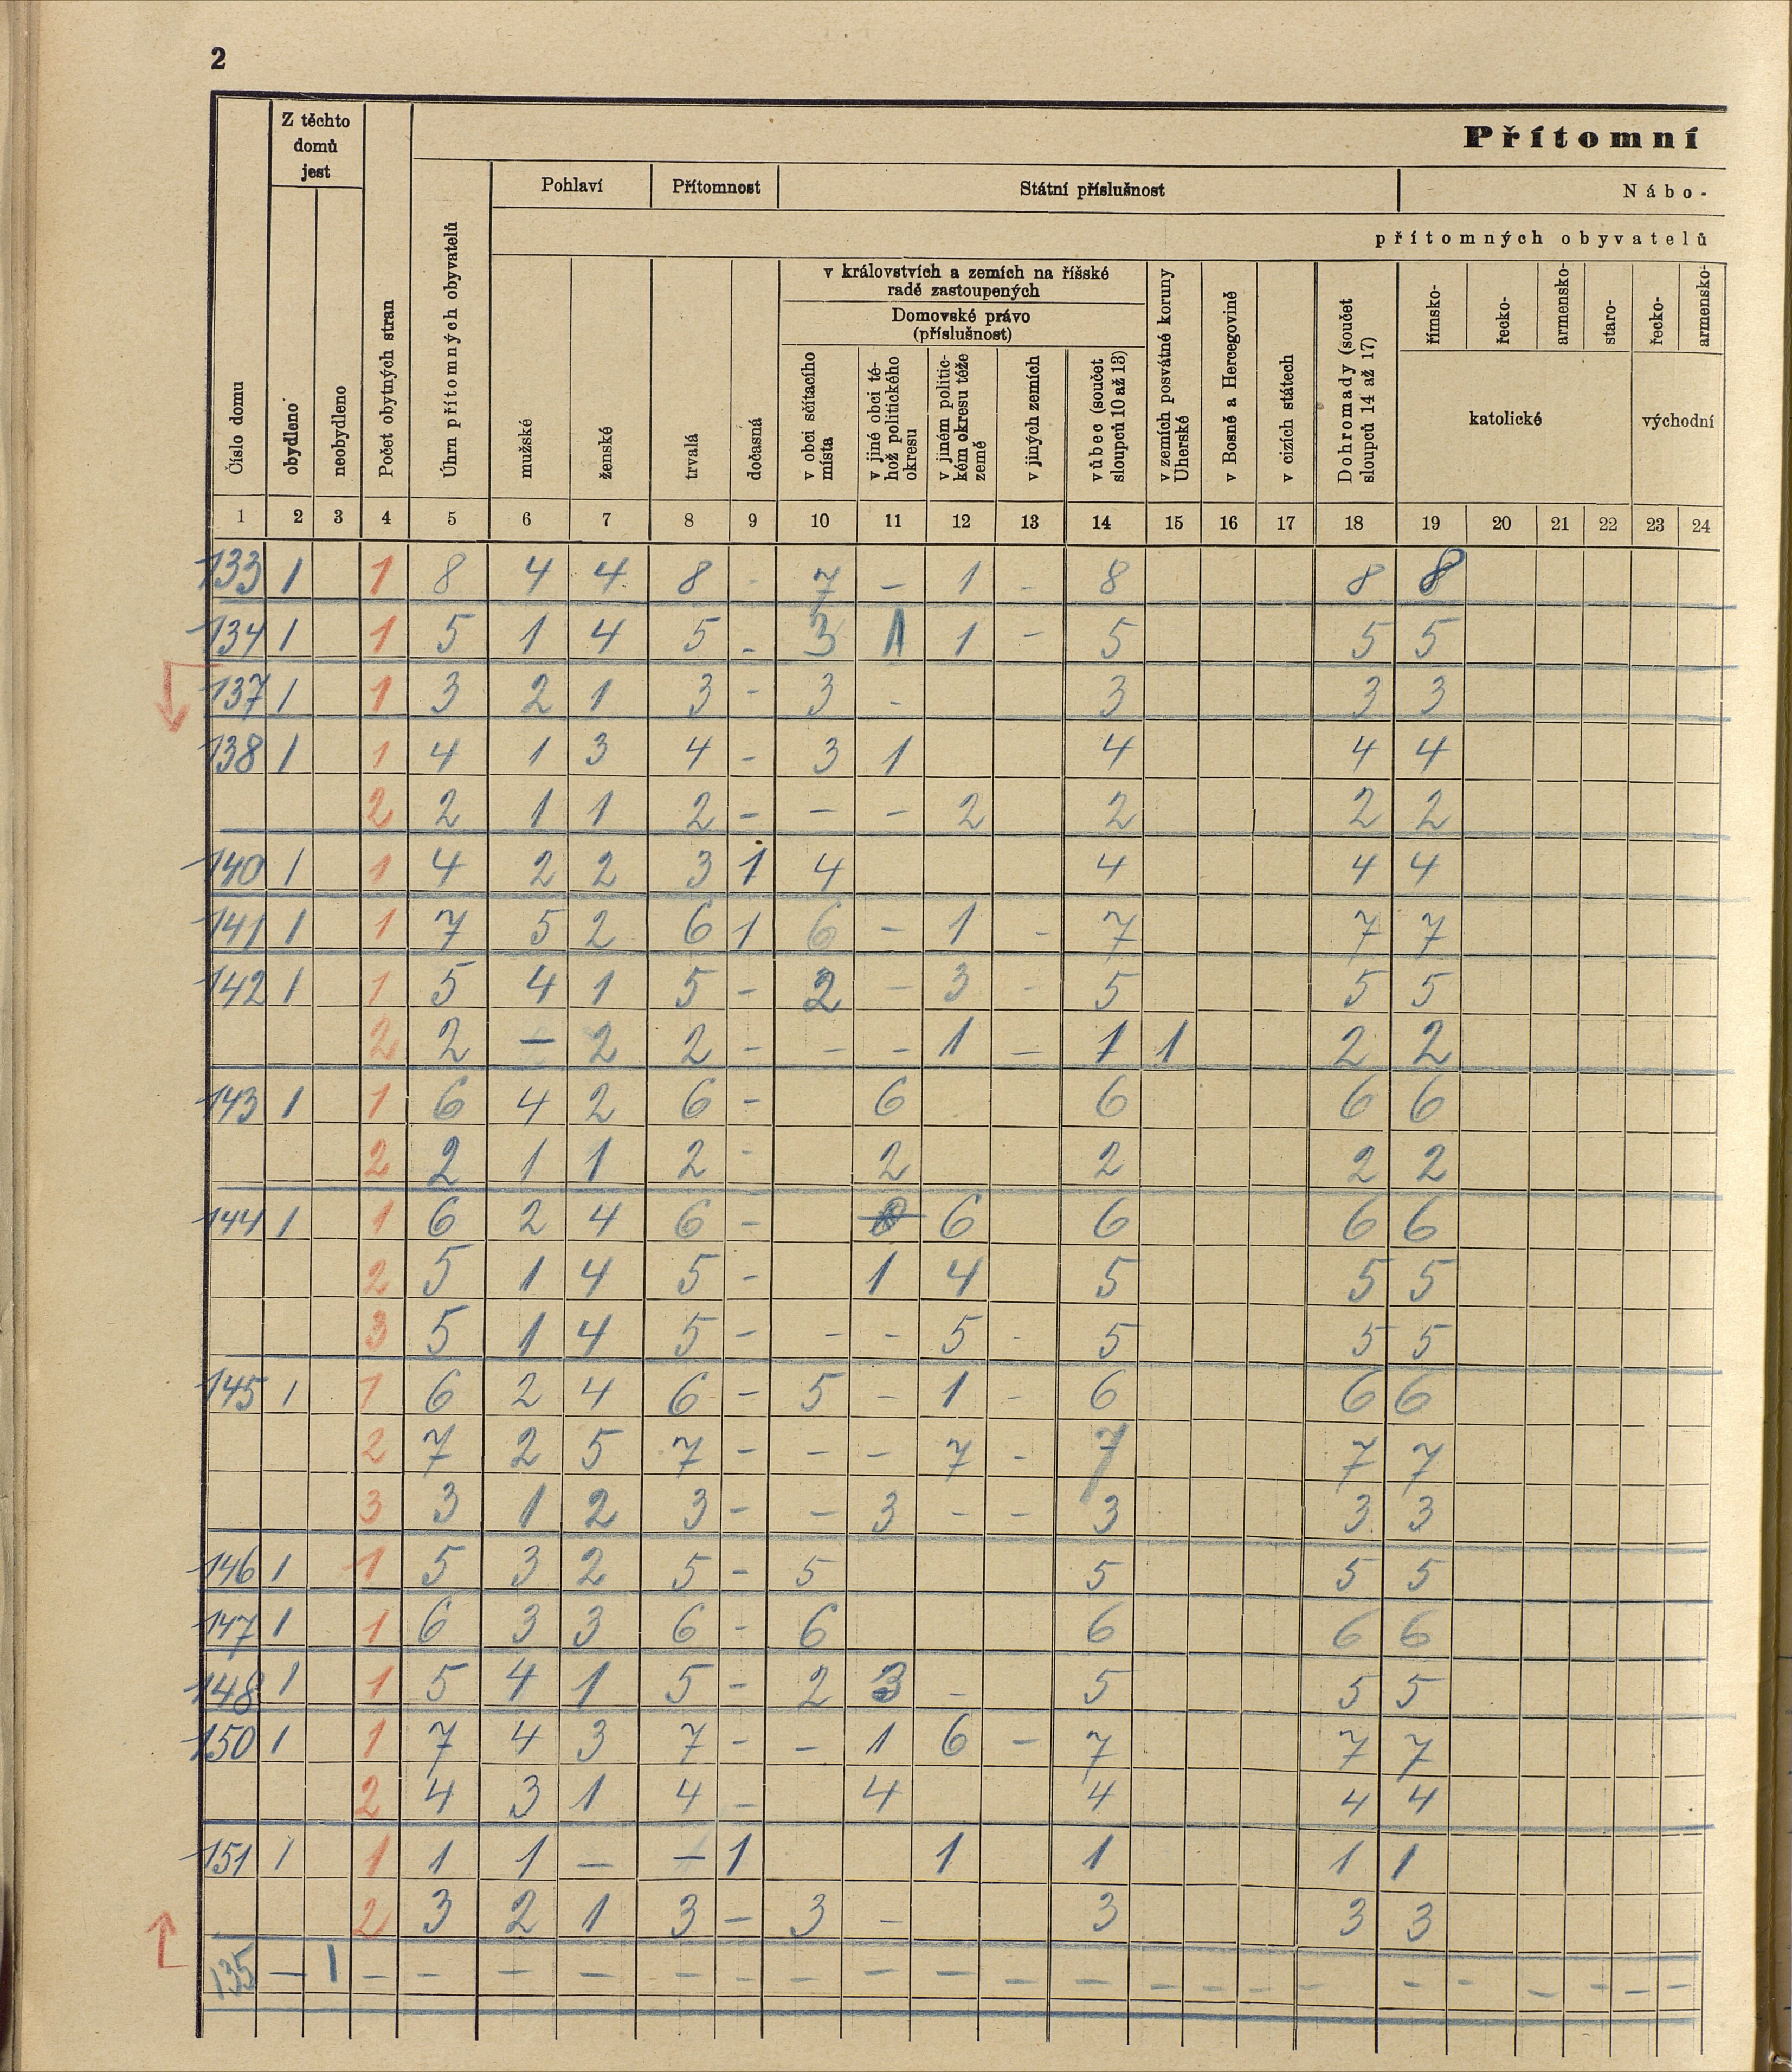 2
Přítomní
Z těchto domů jest
Pohlaví Přítomnost Státní příslušnost Nábo-
přítomných obyvatelů
v královstvích a zemích na říšské radě zastoupených
Domovské právo (příslušnost)
Číslo domu
obydleno
neobydleno
Počet obytných stran
Úhrn přítomných obyvatelů
mužské
ženské
trvalá
dočasná
v obci sčítacího místa
v jiné obci téhož politického okresu
v jiném politickém okresu téže země
v jiných zemích
vůbec (součet sloupců 10 až 13)
v zemích posvátné koruny Uherské
v Bosně a Hercegovině
v cizích státech
Dohromady (součet sloupců 14 až 17)
římsko- řecko- armensko- staro- řecko- armensko-
katolické východní
1 2 3 4 5 6 7 8 9 10 11 12 13 14 15 16 17 18 19 20 21 22 23 24
133 1 1 8 4 4 8 - 7 - 1 - 8 8 8
134 1 1 5 1 4 5 - 3 1 1 - 5 5 5
137 1 1 3 2 1 3 - 3 - 3 3 3
138 1 1 4 1 3 4 - 3 1 4 4 4
2 2 1 1 2 - - - 2 2 2 2
140 1 1 4 2 2 3 1 4 4 4 4
141 1 1 7 5 2 6 1 6 - 1 - 7 7 7
142 1 1 5 4 1 5 - 2 - 3 - 5 5 5
2 2 - 2 2 - - - 1 - 1 1 2 2
143 1 1 6 4 2 6 - 6 6 6 6
2 2 1 1 2 - 2 2 2 2
144 1 1 6 2 4 6 - 6 6 6 6
2 5 1 4 5 - 1 4 5 5 5
3 5 1 4 5 - - - 5 - 5 5 5
145 1 1 6 2 4 6 - 5 - 1 - 6 6 6
2 7 2 5 7 - - - 7 - 7 7 7
3 3 1 2 3 - - 3 - - 3 3 3
146 1 1 5 3 2 5 - 5 5 5 5
147 1 1 6 3 3 6 - 6 6 6 6
148 1 1 5 4 1 5 - 2 3 - 5 5 5
150 1 1 7 4 3 7 - - 1 6 - 7 7 7
2 4 3 1 4 - 4 4 4 4
151 1 1 1 1 - - 1 1 1 1 1
2 3 2 1 3 - 3 - 3 3 3
135 - 1 - - - - - - - - - - - - - - - - - - - - -